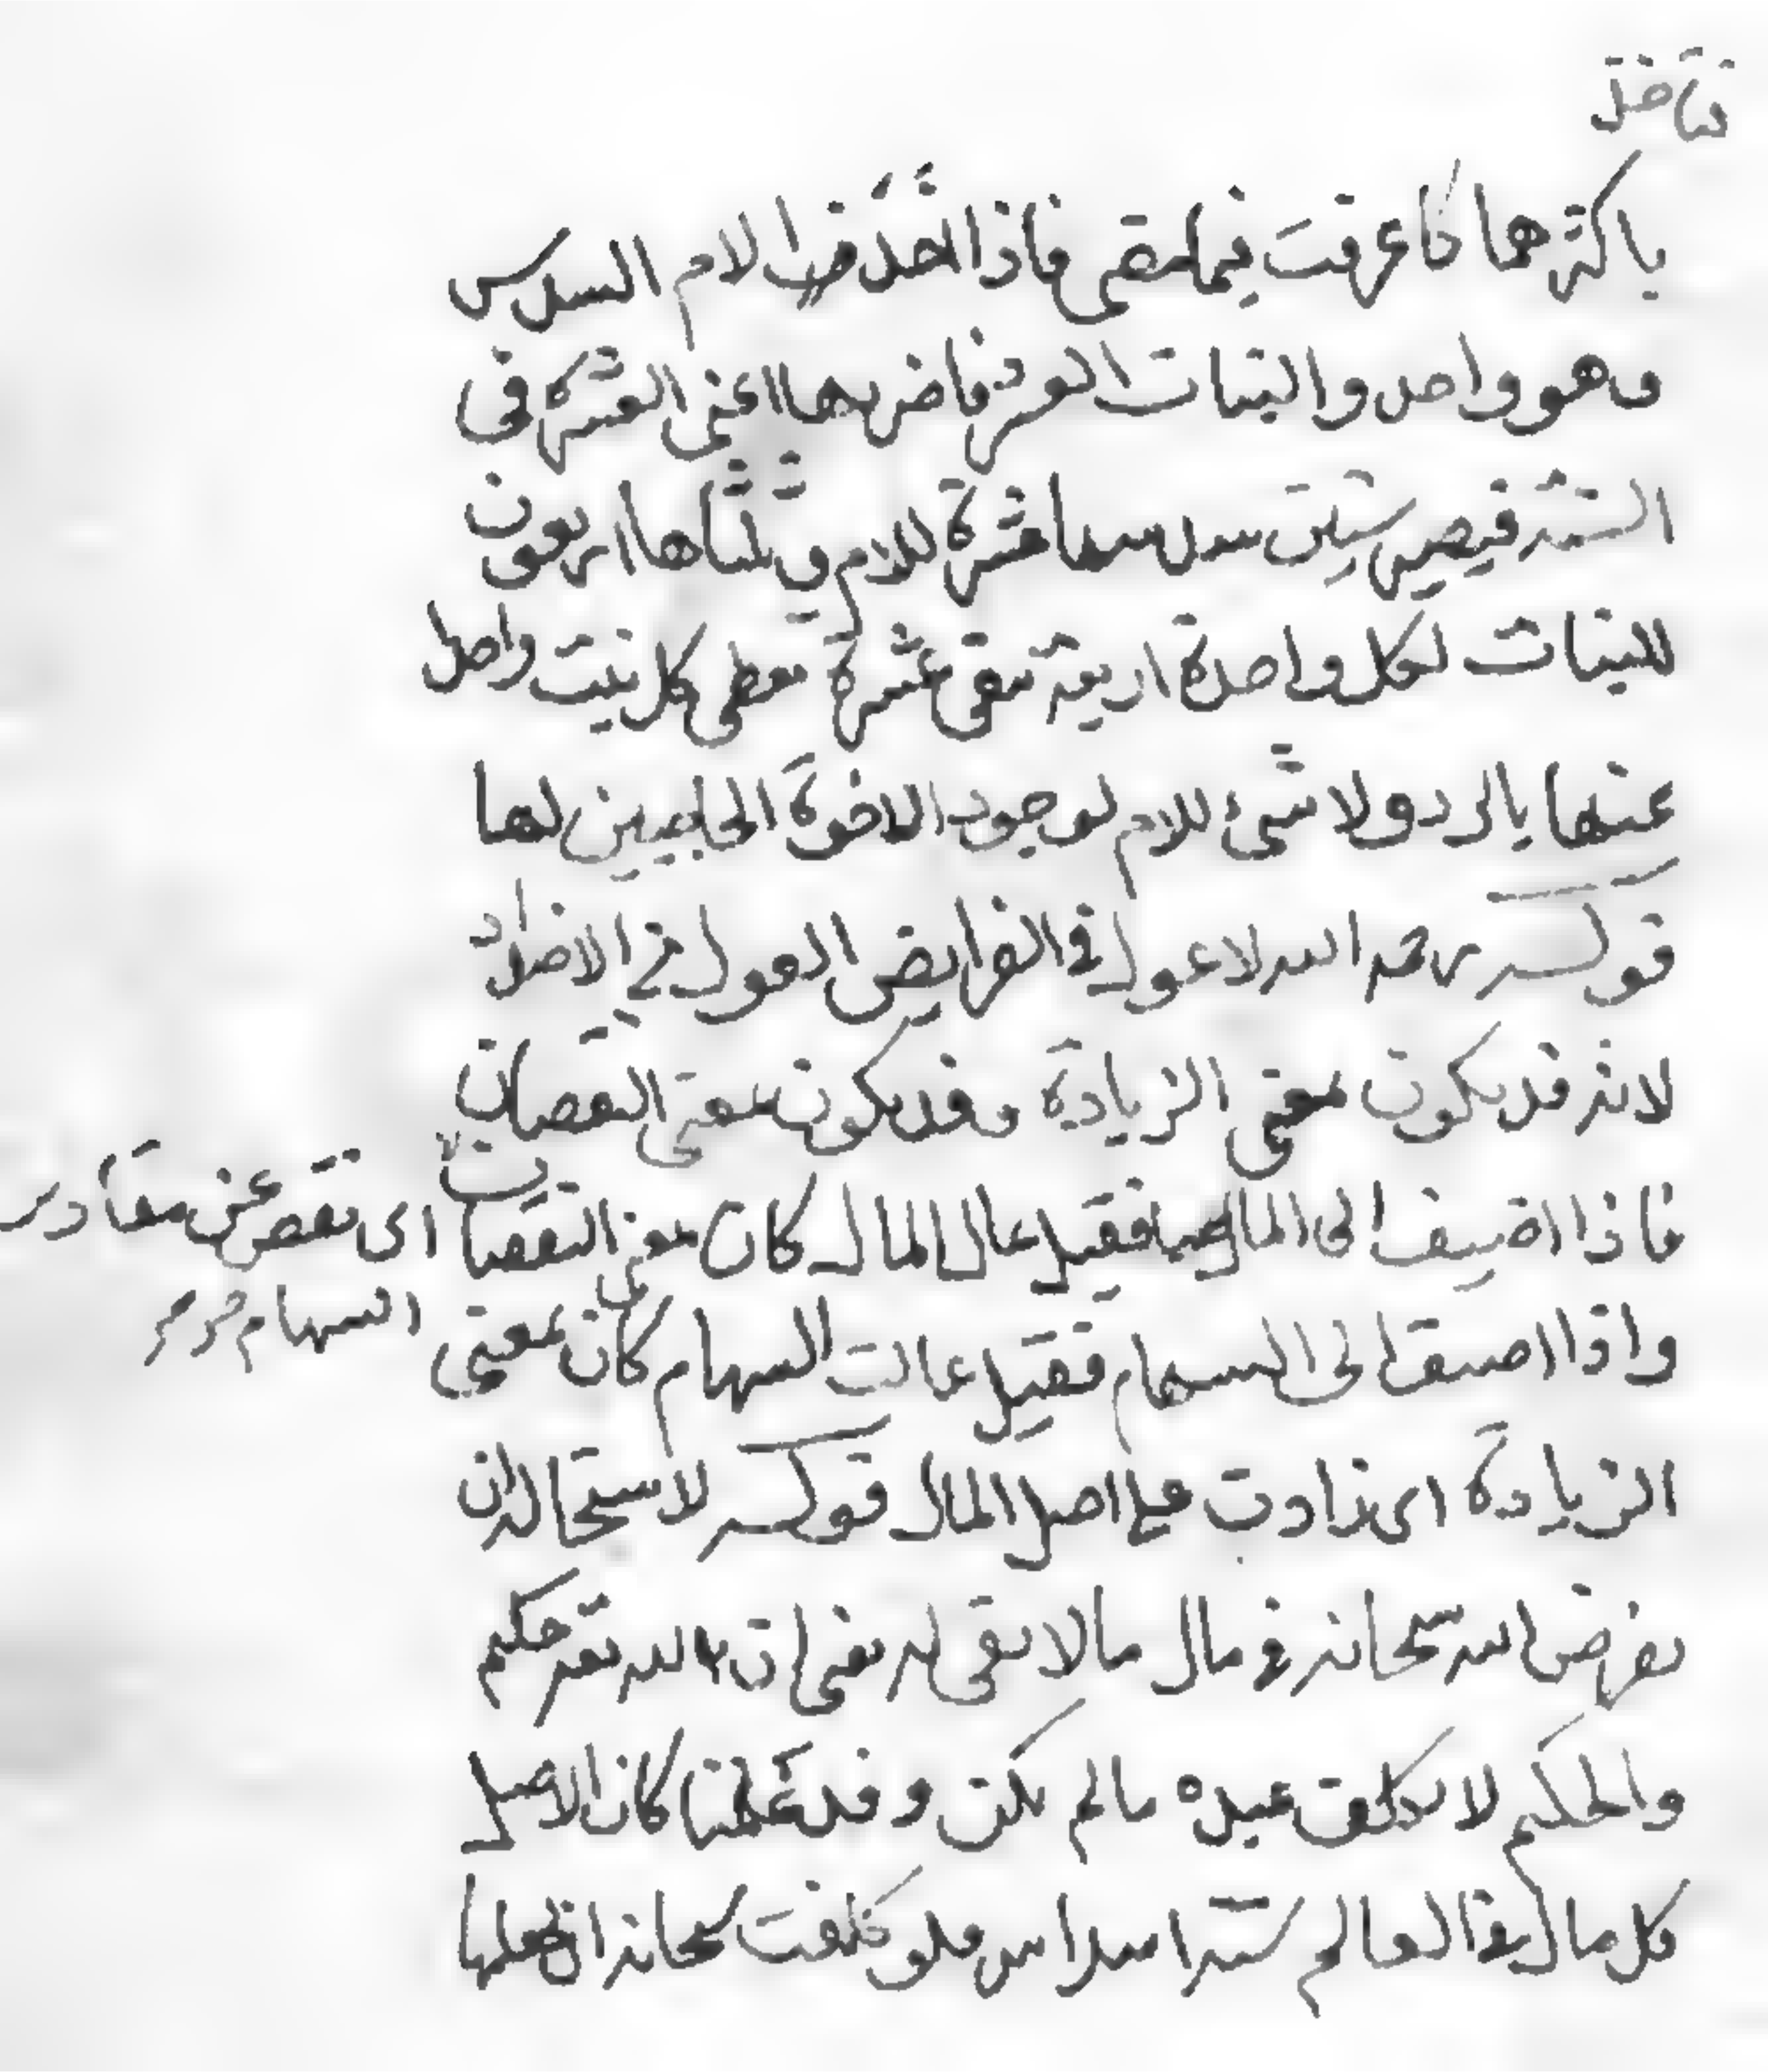 باكثرهما كما عرفت فيما بقى فاذا اخذت الام السدس
وهو واحد والبنات العشر فاضربها اعنى العشرة فى
الستة فيصير ستين سدسها عشرة للام وثلثاها اربعون
للبنات لكل واحدة اربعة تبقى عشرة تعطى كل بنت واحدا
عنها بالرد ولا شئ للام لوجود الاخوة الحاجبين لها
قوله رحمه الله لا عول فى الفرايض العول فى الاضداد
لانه قد يكون بمعنى الزيادة وقد يكون بمعنى النقصان
فاذا اضيف الى المال فقيل عال المال كان بمعنى النقصان اى نقص عن مقادر
السهام
واذا اضيف الى السهام فقيل عالت السهام كان بمعنى
الزيادة اى زادت على اصل المال قوله لاستحالة ان
يفرض الله سبحانه فى مال ما لا يفى به يعنى ان الله تعه حكيم
والحكيم لا يكلف عبده ما لم يكن وقد كان الاصل
كل مال فى العالم ستة اسداس فلو سبحانه ان